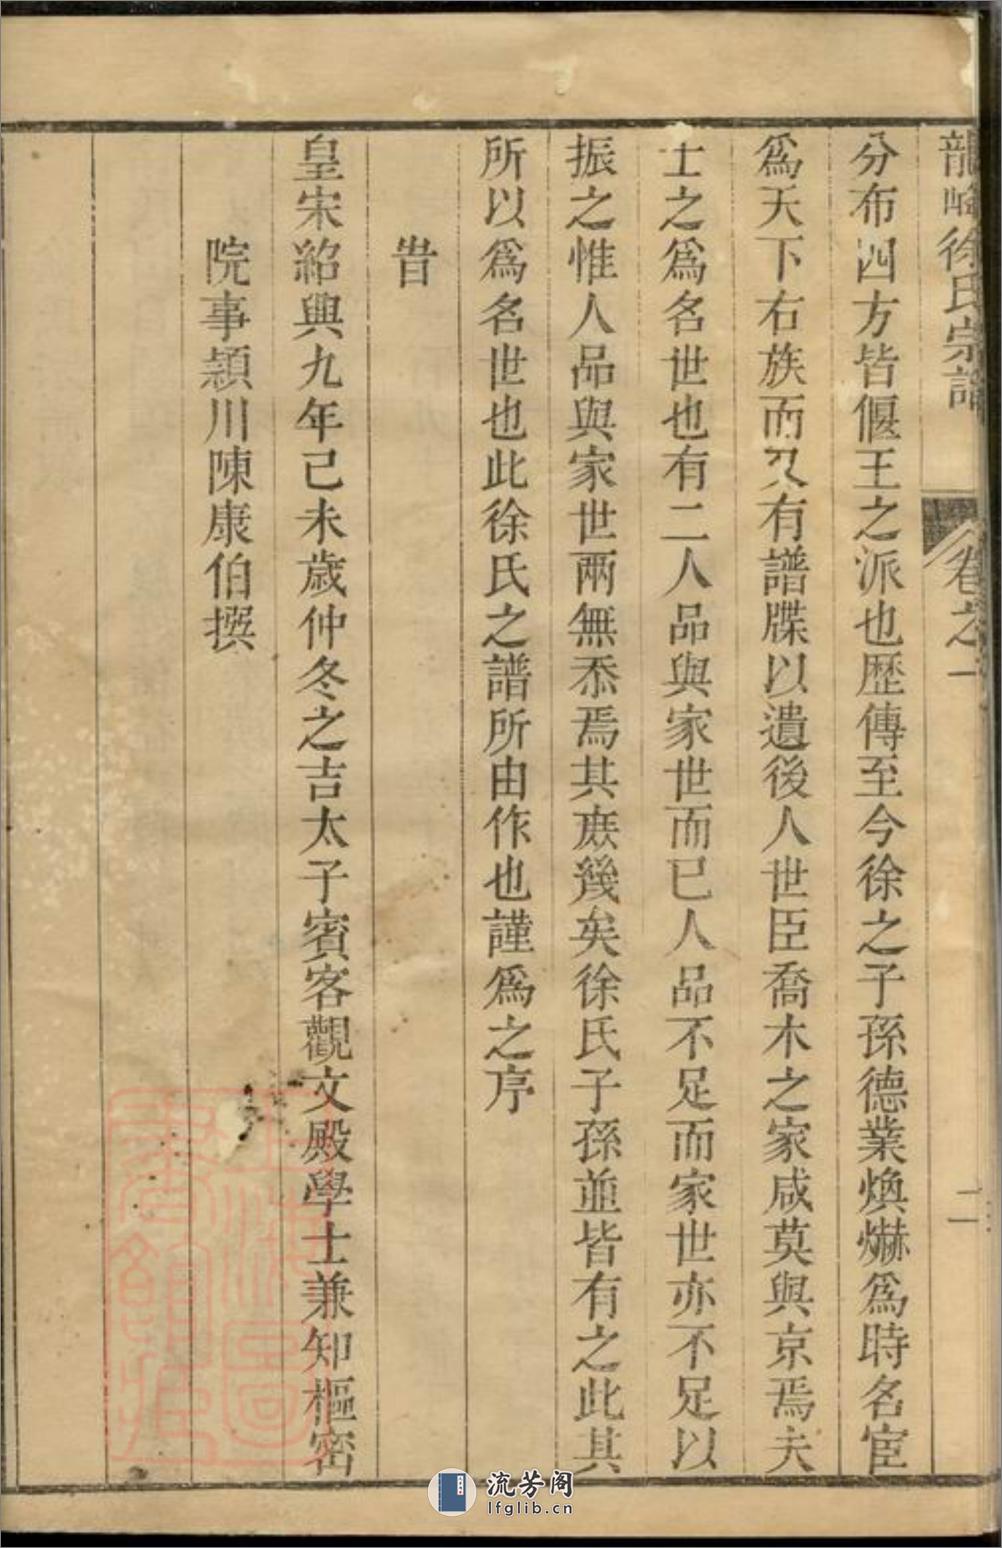 龍峰徐氏宗譜 卷之一 二
分布四方皆偃王之派也歷傳至今徐之子孫德業煥爀爲時名宦
爲天下右族而又有譜牒以遺後人世臣喬木之家咸莫與京焉夫
士之爲名世也有二人品與家世而已人品不足而家世亦不足以
振之惟人品與家世兩無忝焉其庶幾矣徐氏子孫並皆有之此其
所以爲名世也此徐氏之譜所由作也謹爲之序
旹
皇宋紹興九年己未歲仲冬之吉太子賓客觀文殿學士兼知樞密
院事潁川陳康伯撰
流芳阁
lfglib.cn